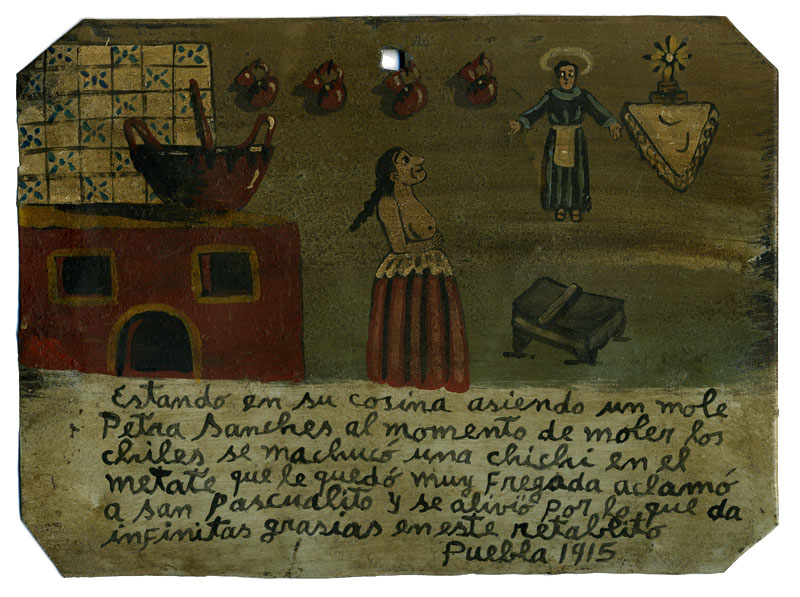 Estando en su cosina asiendo un mole
Petra Sanches al momento de moler los
chiles se machucó una chichi en el
metate que le quedó muy fregada aclamó
a san Pascualito y se alivió por lo que da
infinitas grasias en este retablito
Puebla 1915